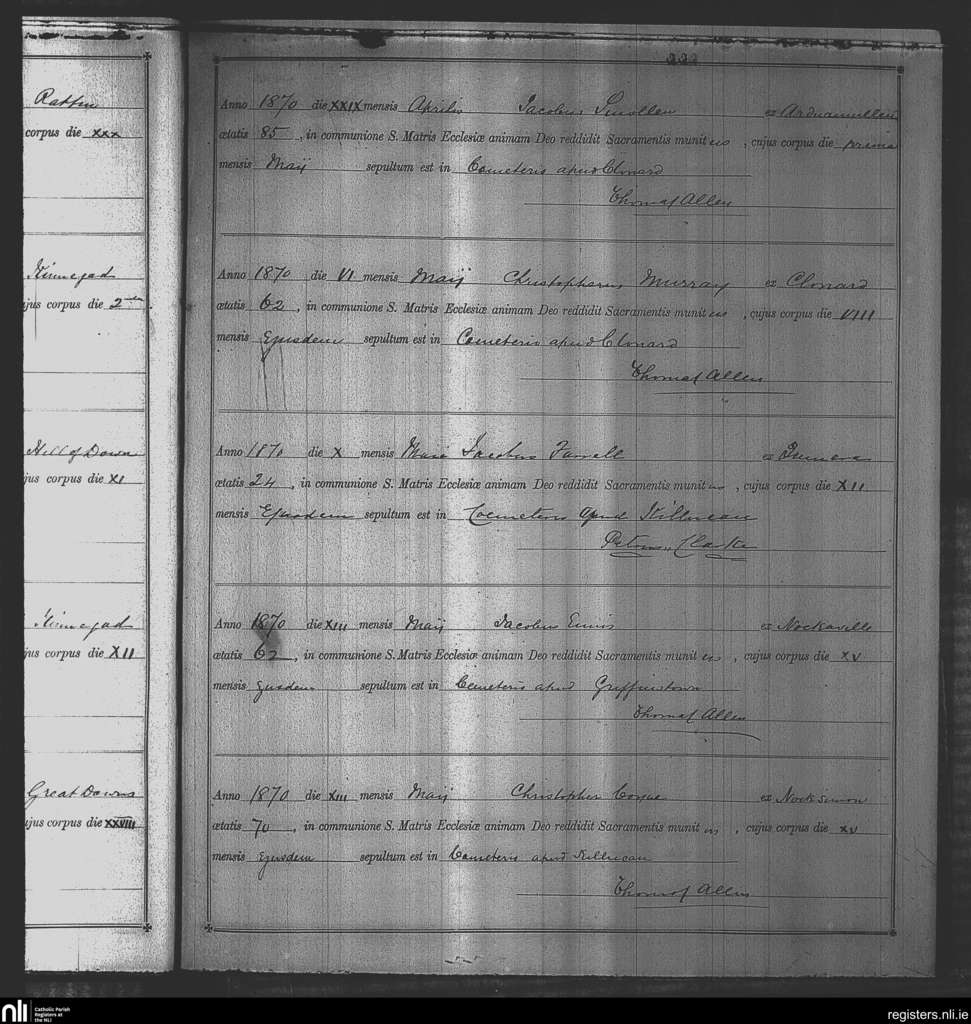 Rattin
corpus die XXX
Kinnegad
jus corpus die 2
Hill of Down
jus corpus die XI
Kinnegad
jus corpus die XII
Great Downs
ujus corpus die XXVIII
222
Anno 1870 die XXIX mensis Aprilis Jacobus Smollen ex
ætatis 85, in communione S. Matris Ecclesiæ animam Deo reddidit Sacramentis munit us, cujus corpus die prima
mensis Maij sepultum est in Cemeterio apud Clonard
Thomas Allen
Anno 1870 die VI mensis Maij Christopherus Murray ex Clonard
ætatis 62, in communione S. Matris Ecclesiæ animam Deo reddidit Sacramentis munit us, cujus corpus die VIII
mensis Ejusdem sepultum est in Cemeterio apud Clonard
Thomas Allen
Anno 1870 die X mensis Maii Jacobus Farrell ex
ætatis 24, in communione S. Matris Ecclesiæ animam Deo reddidit Sacramentis munit us, cujus corpus die XII
mensis Ejusdem sepultum est in Coemeterio apud Killucan
Petrus Clarke
Anno 1870 die XIII mensis Maij Jacobus Ennis ex Nockaville
ætatis 62, in communione S. Matris Ecclesiæ animam Deo reddidit Sacramentis munit us, cujus corpus die XV
mensis Ejusdem sepultum est in Cemeterio apud Griffinstown
Thomas Allen
Anno 1870 die XIII mensis Maij Christopher Coyne ex Nocksimon
ætatis 70, in communione S. Matris Ecclesiæ animam Deo reddidit Sacramentis munit us, cujus corpus die XV
mensis Ejusdem sepultum est in Cemeterio apud Killucan
Thomas Allen
nli Catholic Parish
Registers at
the NLI
registers.nli.ie